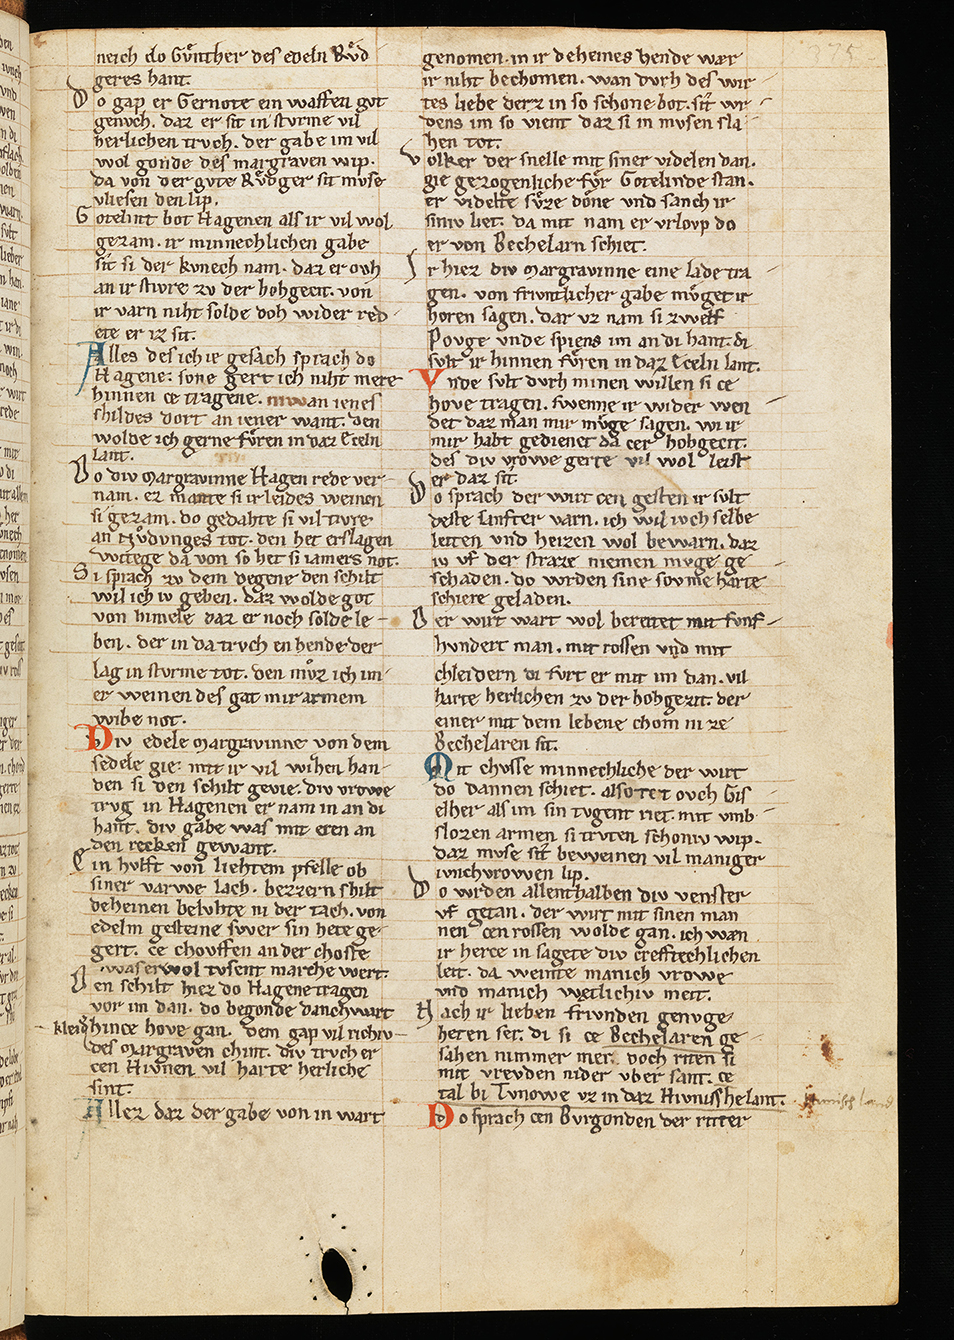 neich do Gůnther des edeln Růd
geres hant.
Do gap er Gernote ein waffen gůt
genvch. daz er sit in stvrme vil
herlichen trvch. der gabe im vil
wol gonde des margraven wip.
da von der gvte Růdger sit mvse
vliesen den lip.
Gotelint bot Hagenen als ir vil wol
gezam. ir minnechlichen gabe
sit si der kvnech nam. daz er ovh
an ir stivre zv der hohgecit. von
ir varn niht solde doh wider red
ete er iz sit.
Alles des ich ie gesach sprach do
Hagene. sone gert ich niht mere
hinnen ce tragene. niwan ienes
shildes dort an iener want. den
wolde ich gerne fůren in daz Eceln
lant.
Do div margravinne Hagen rede ver
nam. ez mante si ir leides weinen
si gezam. do gedahte si vil tivre
an Nůdvnges tot. den het erslagen
Witege da von so het si iamers not.
Si sprach zv dem degene den schilt
wil ich iv geben. daz wolde got
von himele daz er noch solde le
ben. der in da trvch en hende der
lag in stvrme tot. den mvͦz ich im
er weinen des gat mir armem
wibe not.
Div edele margravinne von dem
sedele gie. mit ir vil wihen han
den si den schilt gevie. div vrowe
trvg in Hagenen er nam in an di
hant. div gabe was mit eren an
den recken gewant.
Ein hvlft von liehtem pfelle ob
siner varwe lach. bezzern shilt
deheinen belvhte ni der tach. von
edelm gesteine swer sin hete ge
gert. ce chovffen an der choste
waser wol tvsent marche wert.
Den schilt hiez do Hagene tragen
vor im dan. do begonde danchwart
hince hove gan. dem gap vil richiv
kleid
des margraven chint. div trvch er
cen Hivnen vil harte herliche
sint.
Allez daz der gabe von in wart
genomen. in ir deheines hende wær
ir niht bechomen. wan dvrh des wir
tes liebe derz in so schone bot. sit wr
dens im so vient daz si in mvsen sla
hen tot.
Volker der snelle mit siner videlen dan.
gie gezogenliche fůr Gotelinde stan.
er videlte sv̊ze do̊ne vnd sanch ir
siniv liet. da mit nam er vrlovp do
er von Bechelarn schiet.
Ir hiez div margravinne eine lade tra
gen. von frivntlicher gabe mv̊get ir
horen sagen. dar vz nam si zwelf
Povge vnde spiens im an di hant. di
svlt ir hinnen fůren in daz Eceln lant.
Vnde svlt dvrh minen willen si ce
hove tragen. swenne ir wider wen
det daz man mir mvge sagen. wi ir
mir habt gedienet da cer hohgecit.
des div vrowe gerte vil wol leist
er daz sit.
Do sprach der wirt cen gesten ir svlt
deste sanfter varn. ich wil ivch selbe
leiten vnd heizen wol bewarn. daz
iv vf der straze niemen mvge ge
schaden. do wrden sine sovme harte
schiere geladen.
Der wirt wart wol bereitet mit fvnf
hvndert man. mit rossen vnd mit
chleidern di fvrt er mit im dan. vil
harte herlichen zv der hohgezit. der
einer mit dem lebene chom ni ze
Bechelaren sit.
Mit chvsse minnechliche der wirt
do dannen schiet. also tet ovch Gis
elher als im sin tvgent riet. mit vmb
slozen armen si trvten schoniv wip.
daz mvse sit beweinen vil maniger
ivnchvrowen lip.
Do wrden allenthalben div venster
vf getan. der wirt mit sinen man
nen cen rossen wolde gan. ich wan
ir herce in sagete div crefftechlichen
leit. da weinte manich vrowe
vnd manich wetlichiv meit.
Nach ir lieben frivnden genvge
heten ser. di si ce Bechelaren ge
sahen nimmer mer. doch riten si
mit vrevden nider vber sant. ce
tal bi Tvnowe vz in daz Hivnisshe lant.
Hunisch land
Do sprach cen Bvrgonden der ritter